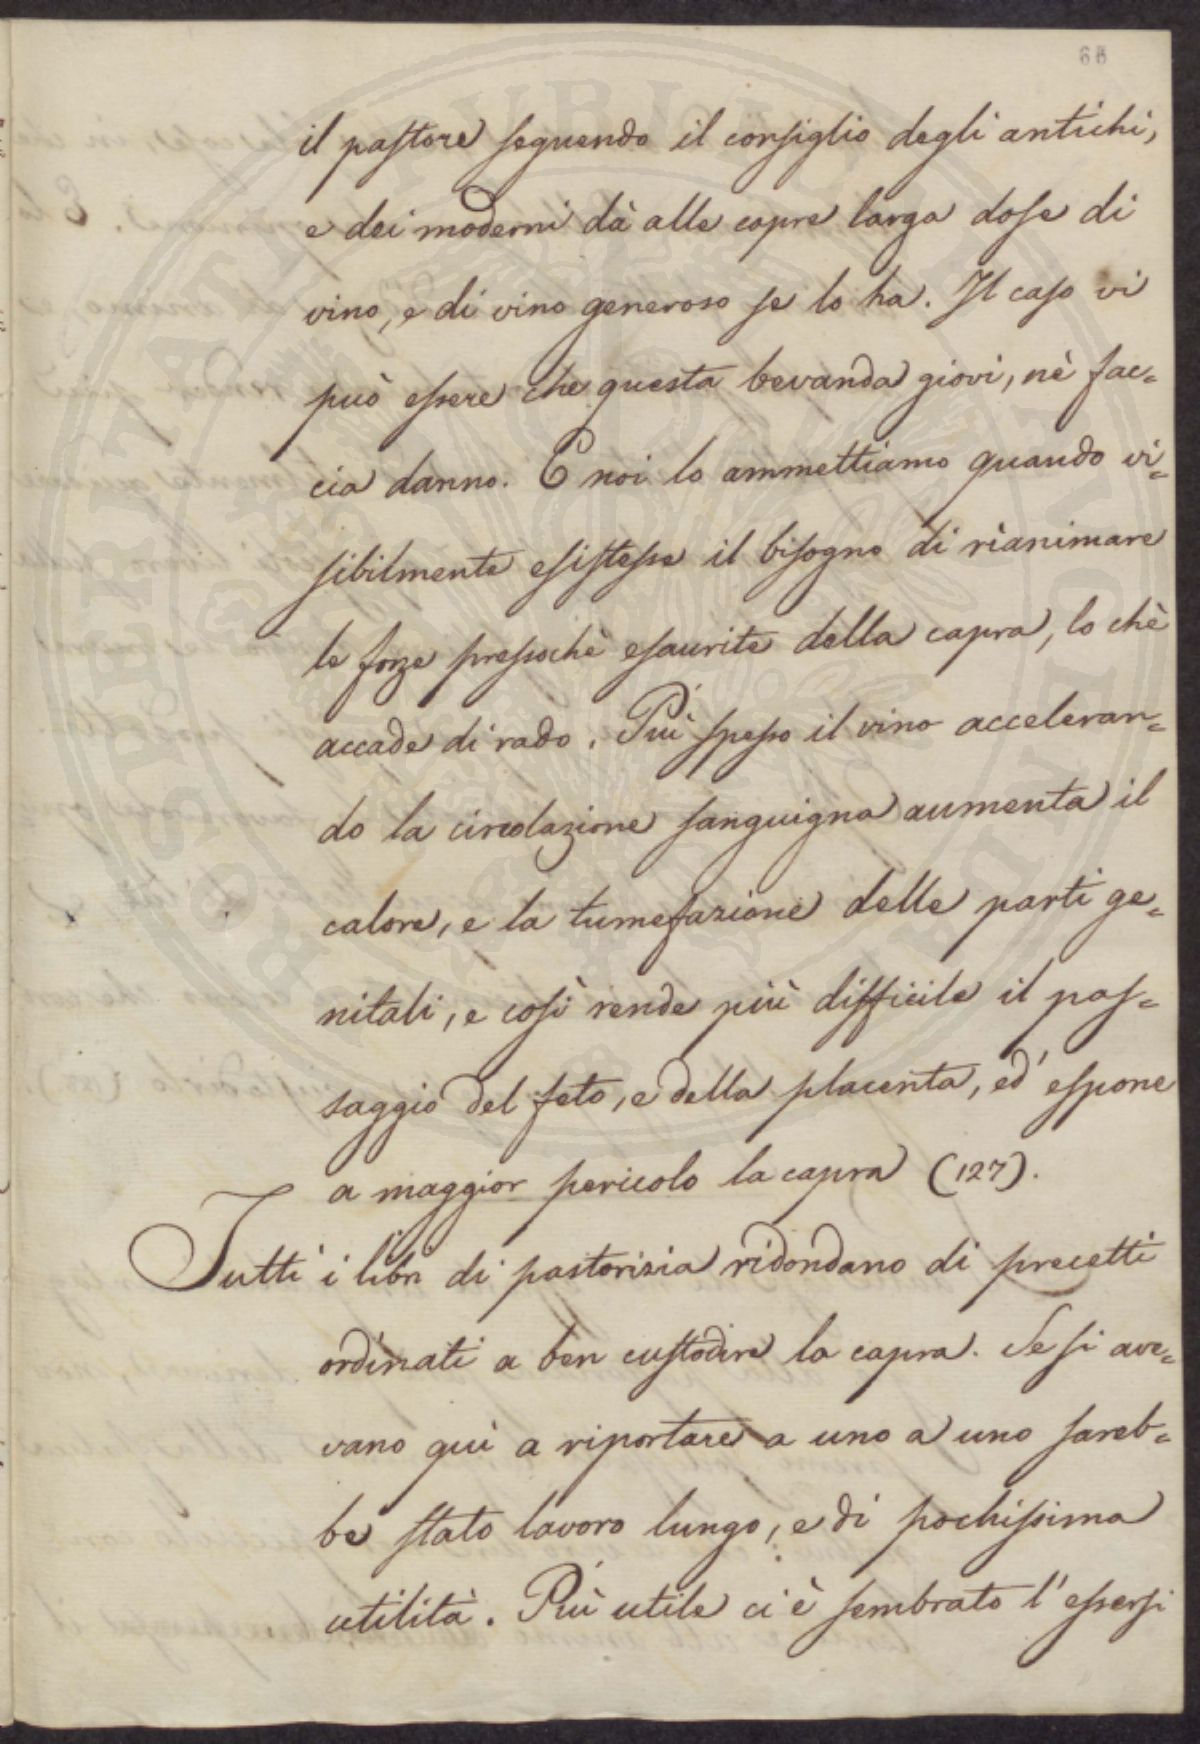 65
il pastore seguendo il consiglio degli antichi,
e dei moderni dà alle capre larga dose di
vino, e di vino generoso se lo ha. Il caso vi
può essere che questa bevanda giovi, nè fac=
cia danno. E noi lo ammettiamo quando vi=
sibilmente esistesse il bisogno di rianimare
le forze pressochè esaurite della capra, lo chè
accade di rado. Più spesso il vino acceleran=
do la circolazione sanguigna aumenta il
calore, e la tumefazione delle parti ge=
nitali, e così rende più difficile il pas=
saggio del feto, e della placenta, ed' espone
a maggior pericolo la capra (127).
Tutti i libri di pastorizia ridondano di precetti
ordinati a ben custodire la capra. Se si ave=
vano quì a riportare a uno a uno sareb=
be stato lavoro lungo, e di pochissima
utilità. Più utile ci è sembrato l'essersi